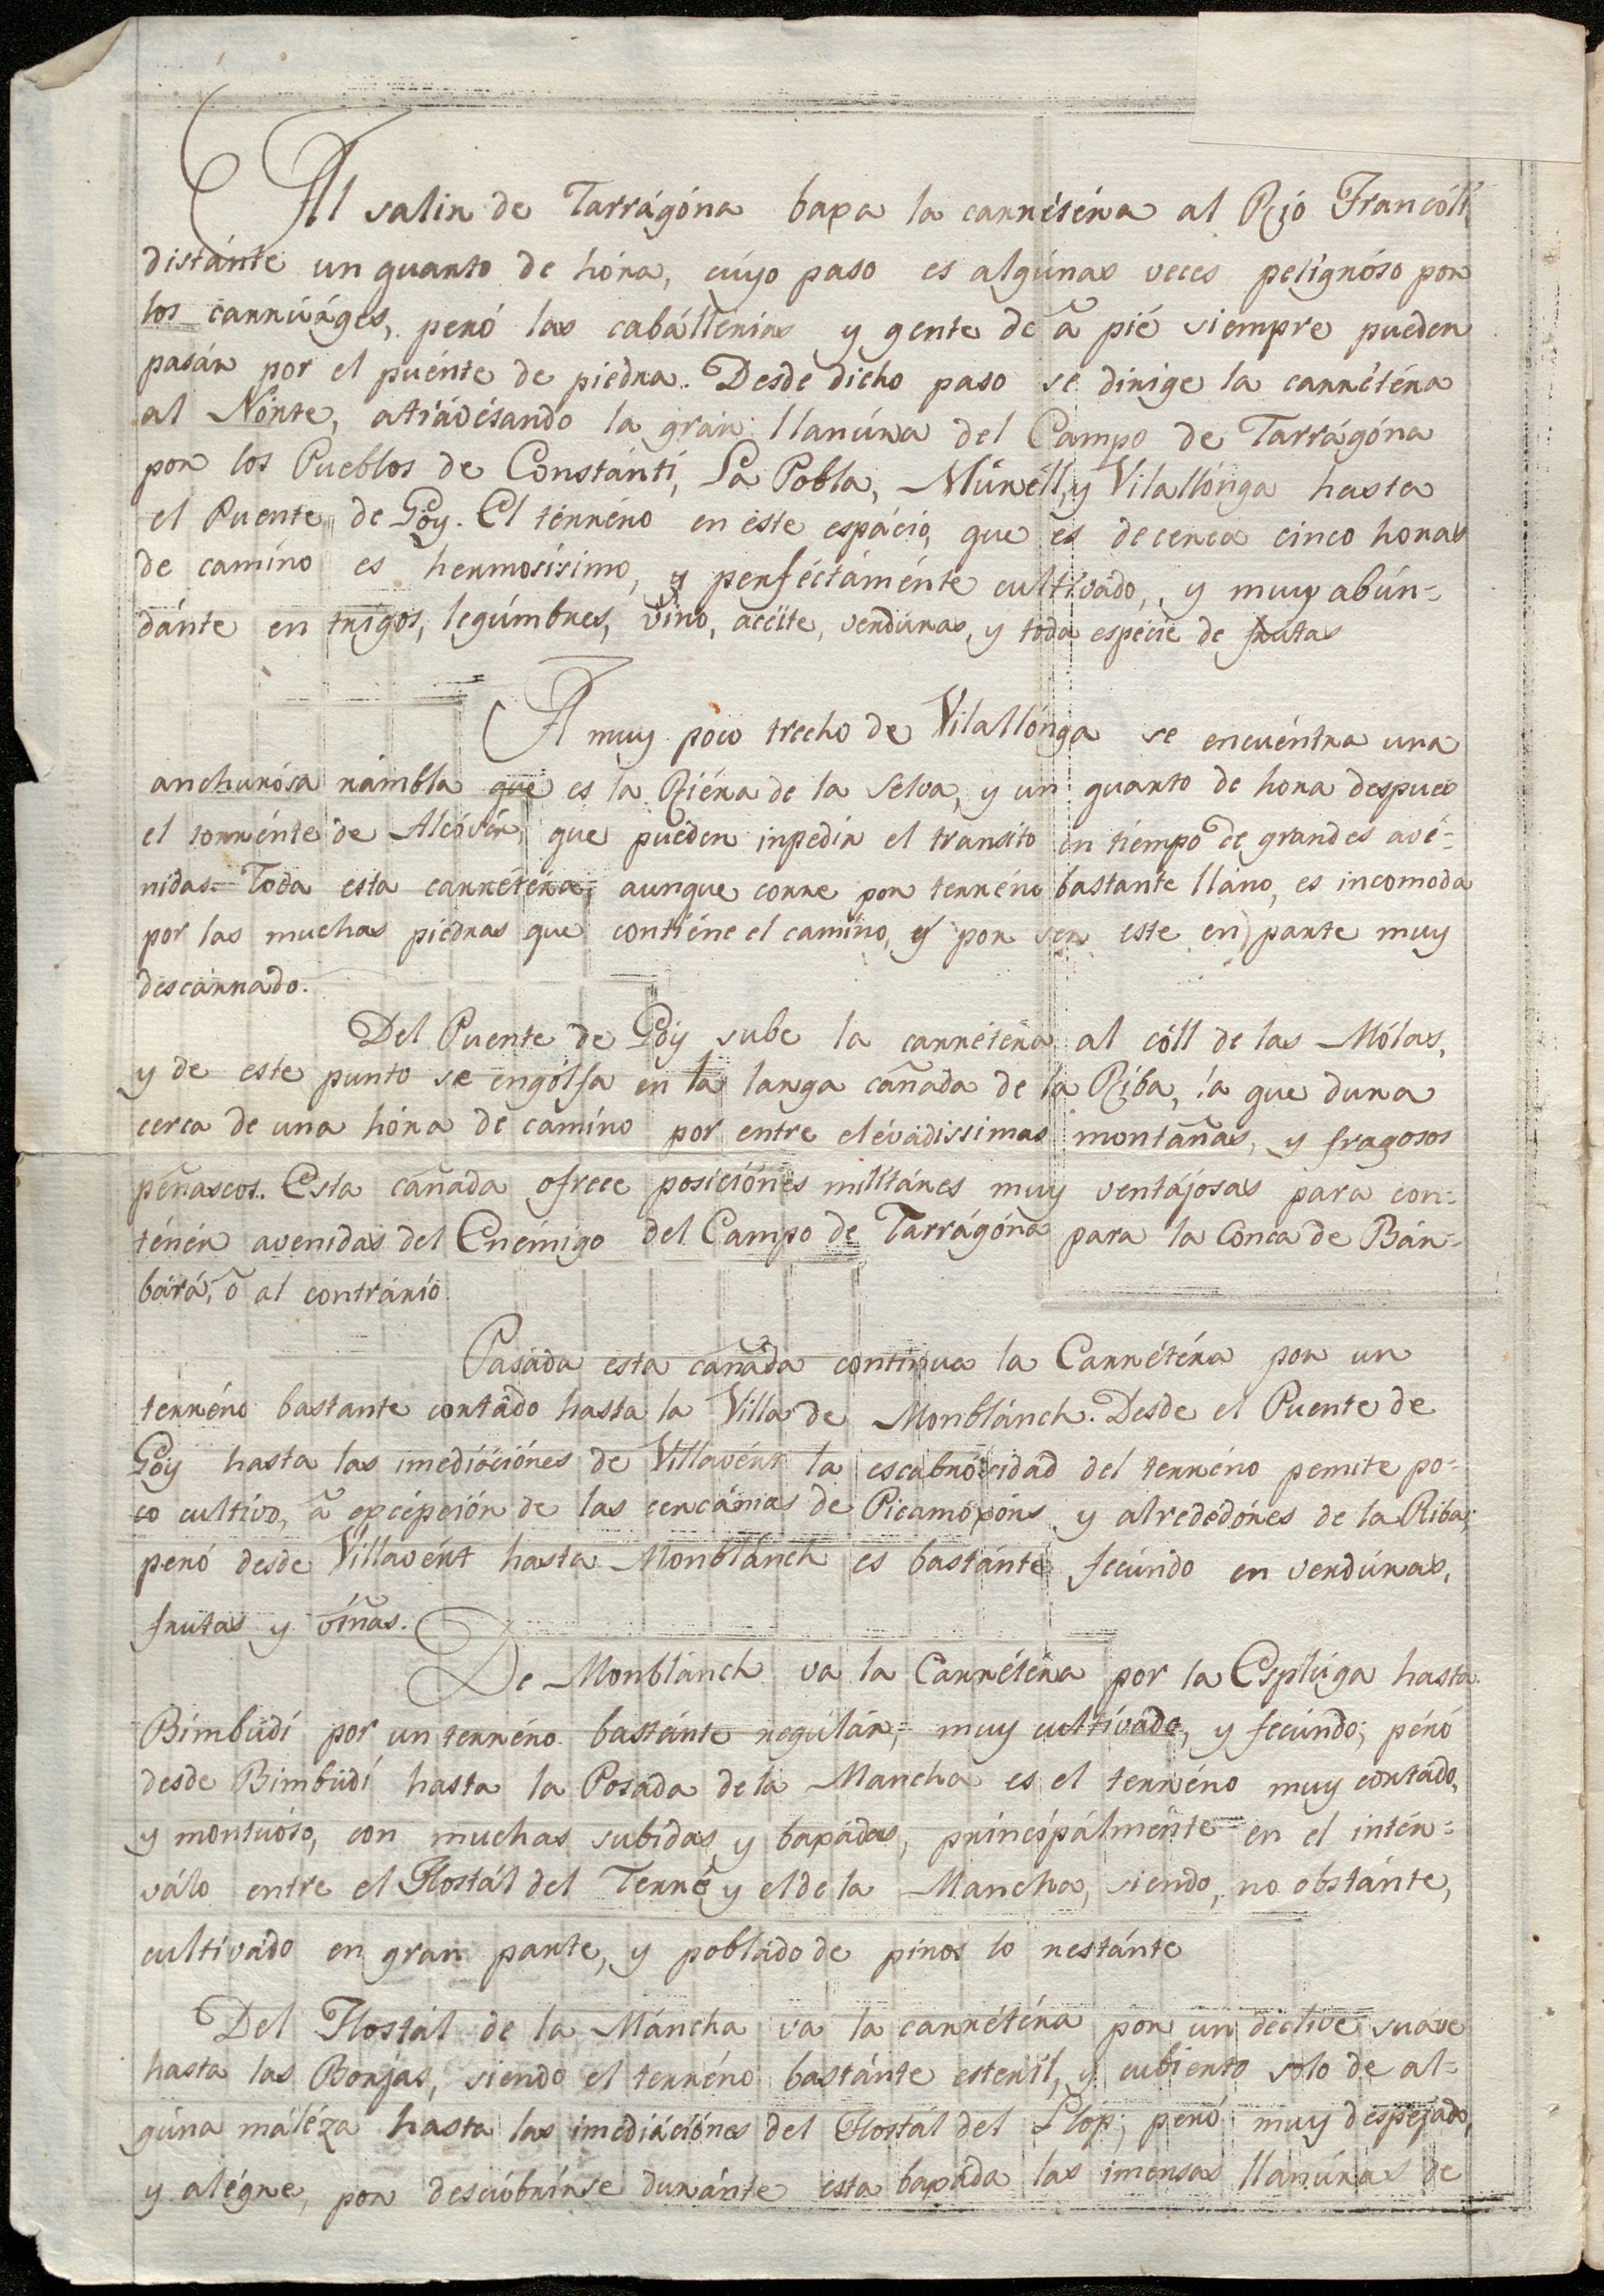 Al salir de Tarrágóna baxa la carretéra al Rió Francólí
distánte un quarto de hóra, cúyo paso es algúnas veces peligróso por
los carruáges, peró las cabállerias y gente de â pié siempre pueden
pasár por el puénte de piedra. Desde dicho paso se dirige la carrétéra
al Nórte, atravésando la gran llanúra del Campo de Tarrágóna
por los Pueblos de Constántí, La Pobla, Múréll, y Vilallónga hasta
el Puente de Goy. El térréno en éste espácio, que es de cerca cinco horas
de camíno es hermosísimo, y perféctáménte cultivádo, y muy abún-
dánte en trigos, legúmbres, vino, acéite, verdúras, y toda especie de frutas
A muy poco trecho de Vilallónga se encuéntra una
anchurósa rámbla que es la Riéra de la Selva, y un quarto de hora despues
el torrénte de Alcóvér, que puéden inpedir el transito en tiempo de grandes avé-
nidas. Toda esta carrétéra, aunque corre por terréno bastante lláno, es incomoda
por las muchas piédras que contiéne el camíno, y por ser este en parte muy
descárnado.
Del Puente de Goy sube la carrétéra al cóll de las Mólas,
y de este punto se engólfa en la larga cañada de la Riba, la que dura
cerca de una hóra de camíno por entre elévadissimas montañas, y fragosos
peñascos. Esta cañada ofrece posiciónes militáres muy ventájosas para con-
ténér avenidas del Enémigo del Campo de Tarrágóna para la Conca de Bár-
bárá, ô al contrário.
Pasáda esta cañáda contínua la Carrétéra por un
terréno bastante cortádo hasta la Villa de Monblánch. Desde el Puente de
Goy hasta las imediációnes de Villavért la escabrócidad del terréno pemite po-
co cultívo, â excépción de las cercánias de Picamóxóns y alrededóres de la Riba;
peró desde Villavért hasta Monblánch es bastánte fecúndo en verdúras,
frutas y viñas.
De Monblánch va la Carrétéra por la Esplúga hasta
Bimbúdí por un terréno bastánte regúlár, muy cultívádo, y fecúndo; péró
desde Bimbúdí hasta la Posáda de la Mancha es el terréno muy cortádo,
y montuóso, con muchas subídas y baxádas, príncipálménte en el intér-
válo entre el Hostál del Terré y el de la Mancha, siendo, no obstánte,
cultivádo en gran parte, y pobládo de pinos lo restánte
Del Hostál de la Máncha va la carrétéra por un declive suáve
hasta las Borjas, siendo el terréno bastánte esteríl, y cubierto solo de al-
gúna máléza hasta las imediációnes del Hostál del Llóp; peró muy despejado,
y alégre, por descúbrírse duránte esta baxáda las imensas llanúras de